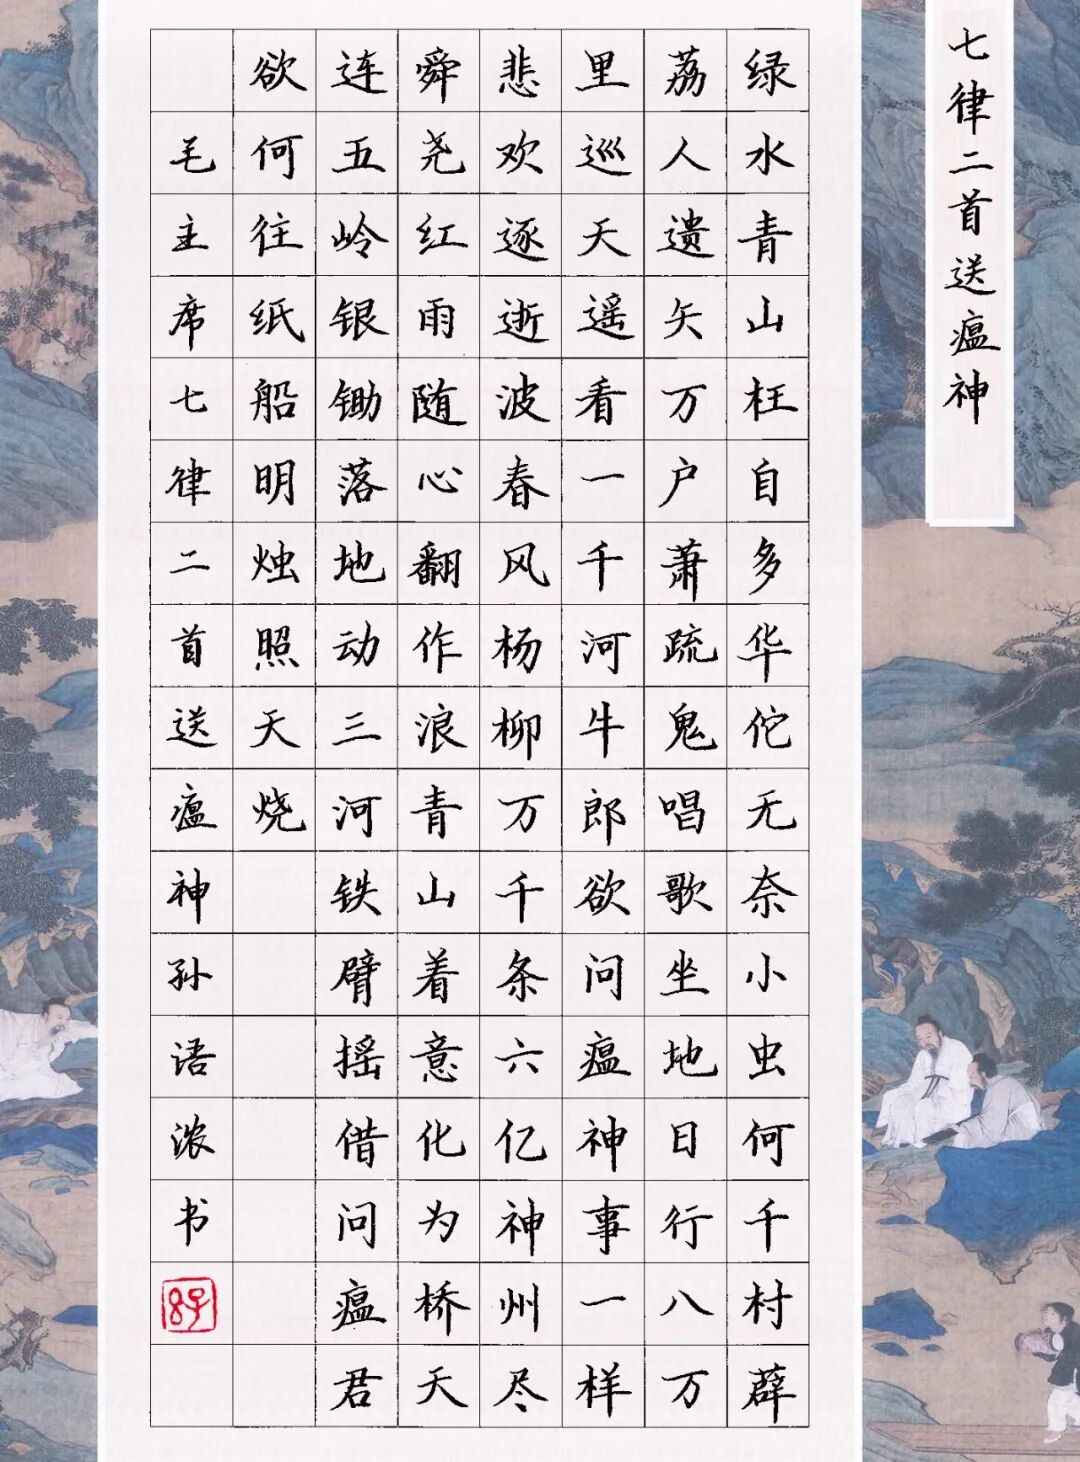 七律二首送瘟神
绿水青山枉自多华佗无奈小虫何千村薜
荔人遗矢万户萧疏鬼唱歌坐地日行八万
里巡天遥看一千河牛郎欲问瘟神事一样
悲欢逐逝波春风杨柳万千条六亿神州尽
舜尧红雨随心翻作浪青山着意化为桥天
连五岭银锄落地动三河铁臂摇借问瘟君
欲何往纸船明烛照天烧
毛主席七律二首送瘟神孙语浓书